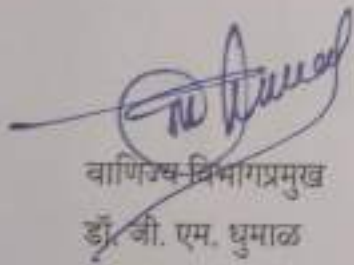 वाणिज्य-विभागप्रमुख
डॉ. जी. एम. धुमाळ